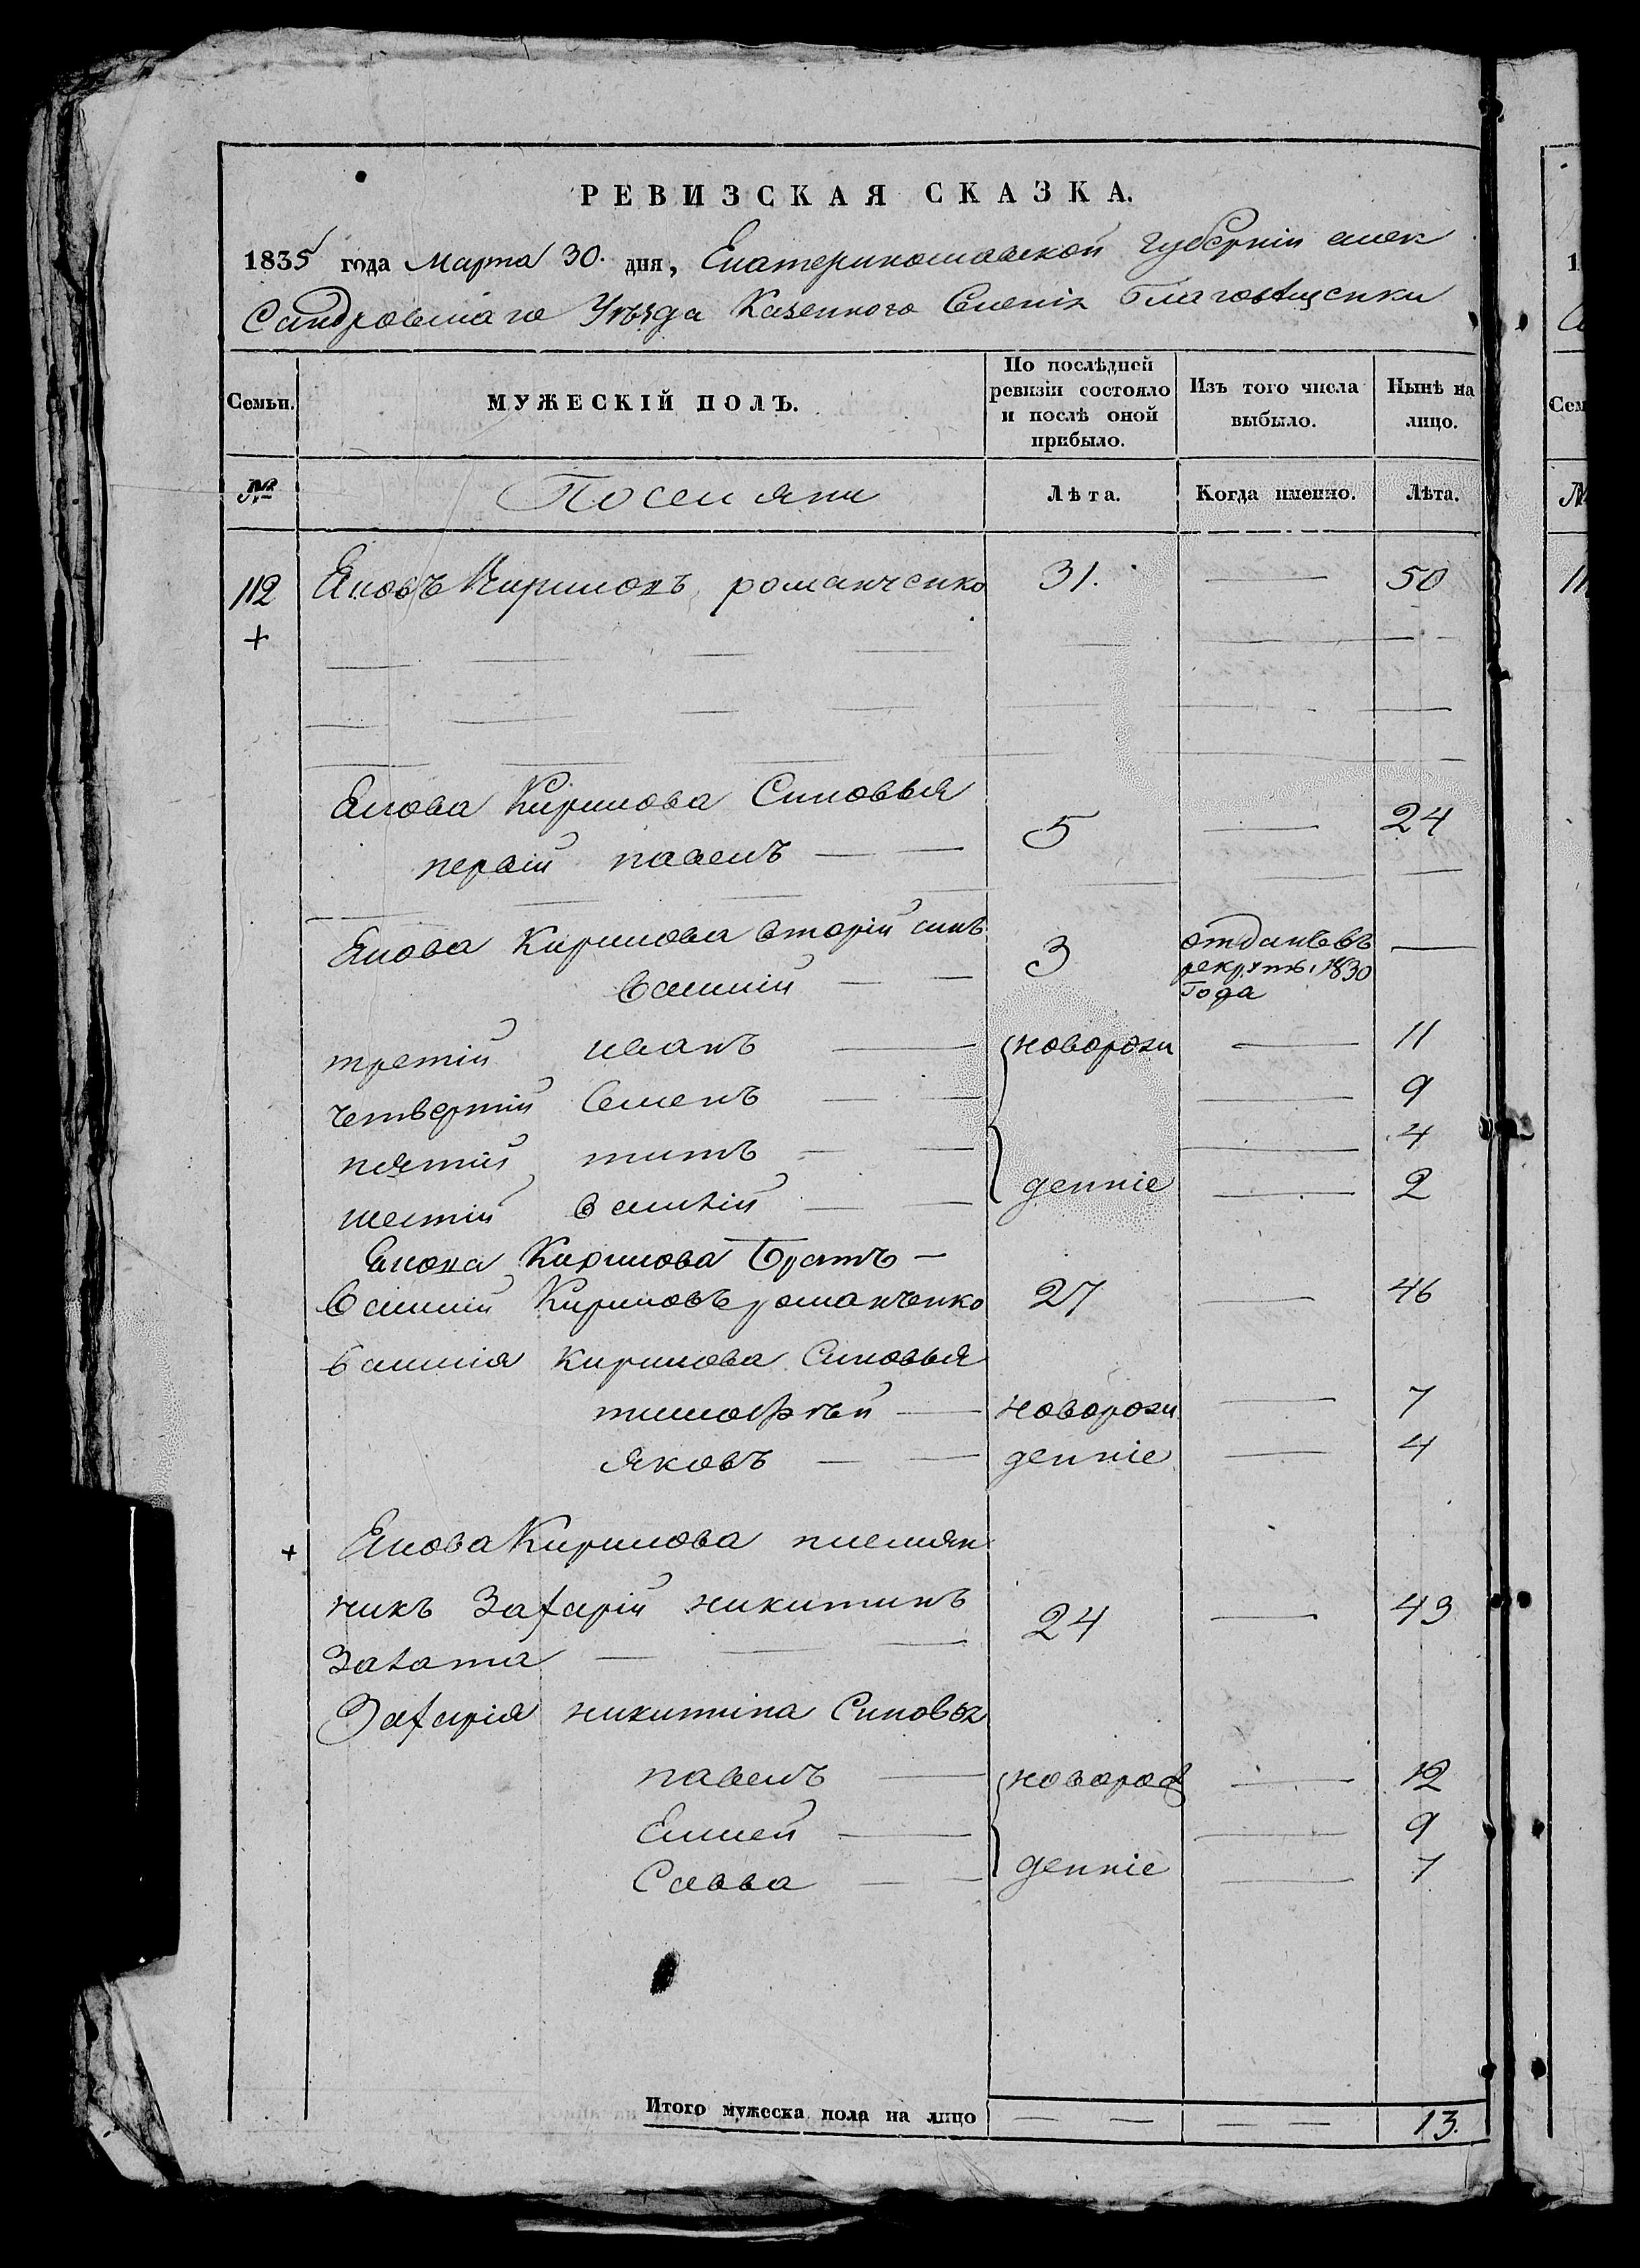 РЕВИЗСКАЯ СКАЗКА.
1835 года Марта 30. дня, Екатеринославской губернии алек
сандровскаго Уѣзда Казенного Селенія Благовѣщенки
Семьи. МУЖЕСКІЙ ПОЛЪ. По послѣдней ревизіи состояло и послѣ оной прибыло. Изъ того числа выбыло. Нынѣ на лицо.
№ Поселяни Лѣта. Когда именно. Лѣта.
112 Яковъ Кириловъ романченко 31. — 50
+
Якова Кирилова Синовья
первій павелъ — — 5 — 24
Якова Кирилова вторій синъ
Василій — — 3 отданъ въ рекруты 1830 года —
третій иванъ — новорож — 11
четвертій Семенъ — — — 9
пятій титъ — — — 4
шестій василій — — денніе — 2
Якова Кирилова Братъ —
Василий Кириловъ романченко 27 — 46
василия Кирилова Синовья
тимофѣй — новорож — 7
яковъ — — денніе — 4
+ Якова Кирилова племян
никъ Захарій никитинъ 24 — 43
Захарія никитина Синовья
павелъ — новорож — 12
Елисей — — 9
Савва — — денніе — 7
Итого мужеска пола на лицо — — — — 13.